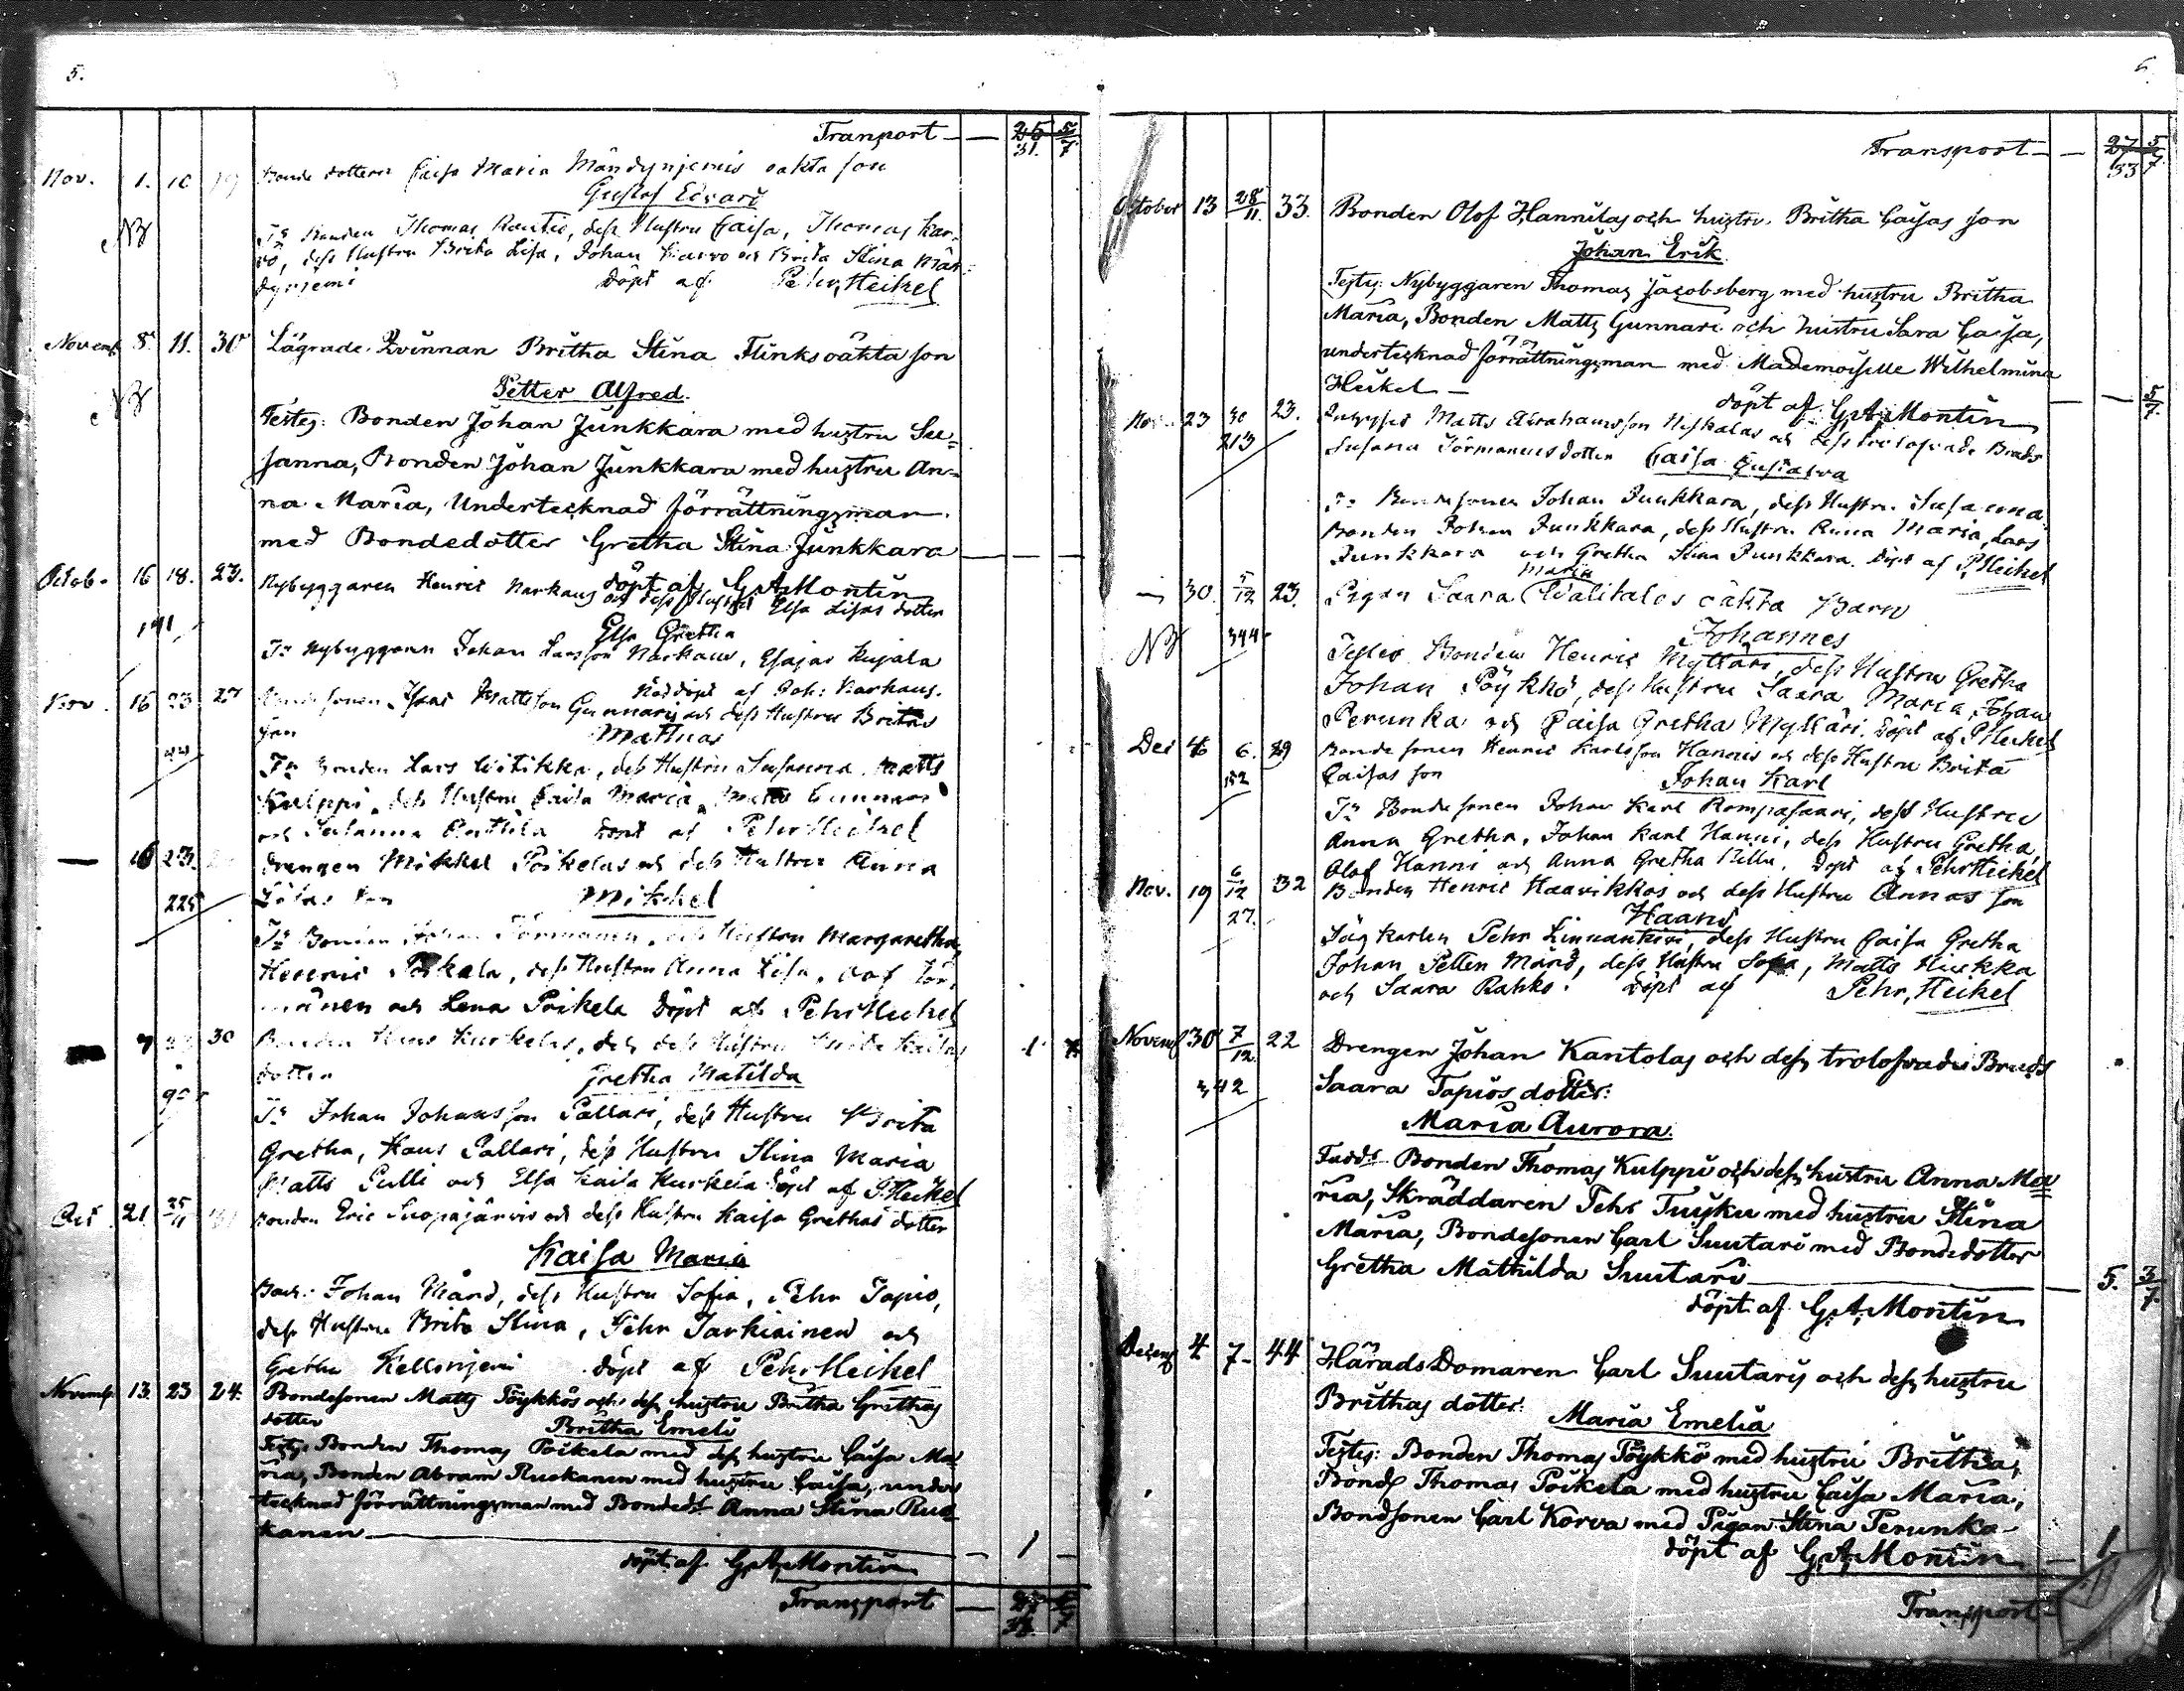 5.
Transport — 25 5/7
31. 7
Nov. 1. 10 19 Bonde dottern Caisa Maria Mändynjemis oäkta son
Gustaf Edvard
NB
Ts Bonden Thomas Rautio, dess Hustru Caisa, Thomas Kar-
vo, dess Hustru Brita Lisa, Johan Karvo och Brita Stina Män-
dynjemi döpt af Pehr Heikel
Novemb. 8. 11. 30 Lägrade Qvinnan Britha Stina Flinks oäkta son
NB
Petter Alfred.
Testes: Bonden Johan Junkkara med hustru Su=
sanna, Bonden Johan Junkkara med hustru An=
na Maria, Undertecknad förrättningsman
med Bondedotter Gretha Stina Junkkara
döpt af G. A. Montin
Octob. 16 18. 23. Nybyggaren Henric Narkaus och dess Hustru Elsa Lisas dotter
191
Elsa Gretha
Ts Nybyggaren Johan Larsson Narkaus, Esajas Kujala
Nöddöpt af Joh: Narkaus.
Nov. 16 23 27 Bondesonen Isaac Mattsson Gunnaris och dess Hustru Britas
son Mathias
44
Ts Bonden Lars Witikka, dess Hustru Susanna, Matts
Kulppi, dess Hustru Brita Maria, Matts Gunnari
och Susanna Anttila döpt af Pehr Heikel
— 16 23. Drengen Mikkel Poikelas och dess Hustru Anna
Lisas son Mikkel
225
Ts Bonden Johan Törmänen, dess Hustru Margaretha,
Henric Poikela, dess Hustru Anna Lisa, Olof Tör-
mänen och Lena Poikela döpt af Pehr Heikel
7 23 30 Bonden Hans Kurkelas, och dess Hustru Brita Kaisas 1
dotter Gretha Matilda
90
Ts Johan Johansson Pallari, dess Hustru Brita
Gretha, Hans Pallari, dess Hustru Stina Maria
Matts Pulli och Elsa Kaisa Kurkela döpt af P. Heikel
Oct 21. 25/11 Bonden Eric Suopajärvis och dess Hustru Kaisa Grethas dotter
Kaisa Maria
Johan Mård, dess Hustru Sofia, Pehr Tapio,
dess Hustru Brita Stina, Pehr Tarkiainen och
Gretha Kellonjemi döpt af Pehr Heikel
Novemb. 13. 23 24. Bondesonen Matts Pöykkös och dess hustru Britha Grethas
dotter
Britha Emeli
Testes Bonden Thomas Poikela med dess hustru Caisa Ma=
ria, Bonden Abram Ruokanen med hustru Caisa, under
tecknad förrättningsman med Bondedr Anna Stina Ruo=
kanen — 1 —
döpt af G. A. Montin
Transport — 27 5
33. 7
6.
Transport — 27 5
33 7
October 13 28/11. 33. Bonden Olof Hannilas och hustru Britha Caisas son
Johan Erik.
Testes: Nybyggaren Thomas Jacobsberg med hustru Britha
Maria, Bonden Matts Gunnari och hustru Sara Caisa,
undertecknad förrättningsman med Mademoiselle Wilhelmina
Heikel — döpt af G. A. Montin — 5/7.
Nov. 23 30 23. Matts Abrahamsson Niskalas och dess trolofvade Bruds
213 Susanna Törmänens dotter Caisa Gustava
Ts Bondesonen Johan Junkkara, dess Hustru Susanna
Bonden Johan Junkkara, dess Hustru Anna Maria, Lars
Junkkara och Gretha Stina Junkkara. döpt af P. Heikel
Maria
30. 5/12 23. Pigan Saara Walitalos oäkta Barn
NB 344
Johannes
Testes Bonden Henric Mylläri, dess Hustru Gretha
Johan Pöykkö, dess Hustru Saara Maria, Johan
Perunka och Caisa Gretha Mylläri. döpt af P. Heikel
Dec 4 6. 29 Bondesonen Henric Karlsson Hannis och dess Hustru Brita
152 Caisas son Johan Karl
Ts Bondesonen Johan Karl Rompasaari, dess Hustru
Anna Gretha, Johan Karl Hanni, dess Hustru Gretha
Olof Hanni och Anna Gretha Killu. döpt af Pehr Heikel
Nov. 19 6/12 32 Bonden Henric Haavikkos och dess Hustru Annas son
27. Haans
Johan Petter Mård, dess Hustru Sofia, Matts Hiukka
och Saara Rahko. döpt af Pehr Heikel
Novemb 30 7/12. 22 Drengen Johan Kantolas och dess trolofvade Bruds
342 Saara Tapios dotter:
Maria Aurora.
Faddr Bonden Thomas Kulppi och dess hustru Anna Ma=
ria, Skräddaren Pehr Tuisku med hustru Stina
Maria, Bondesonen Carl Suutari med Bondedotter
Gretha Mathilda Suutari — 5. 3/7.
döpt af G. A. Montin
Decemb 4 7- 44 HäradsDomaren Carl Suutaris och dess hustru
Brithas dotter: Maria Emelia
Testes: Bonden Thomas Pöykkö med hustru Britha,
Bond Thomas Poikela med hustru Caisa Maria,
Bondsonen Carl Korva med Pigan Stina Perunka —
döpt af G. A. Montin — 1
Transport —